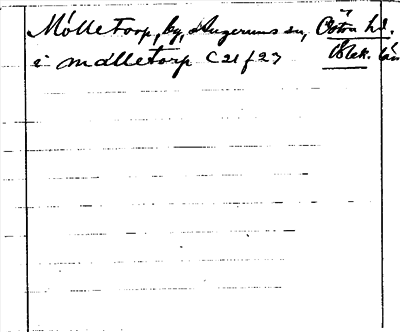 Mölletorp, by, Augerums sn, Östra hd.
i mölletorp C 21 f 27 Blek. län